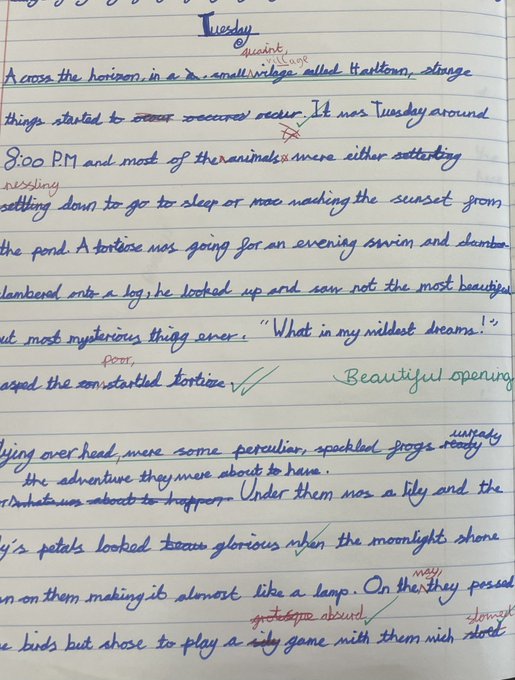 Tuesday
quaint,
village
Across the horizon, in a small vilage called Harltown, strange
things started to occur occures occur. It was Tuesday around
8:00 P.M and most of the animals were either setterling
nessling
settling down to go to sleep or wac waching the sunset from
the pond. A tortiose was going for an evening swim and clambe
clambered onto a log, he looked up and saw not the most beautiful
ut most mysterious thing ever. "What in my wildest dreams!"
poor,
asped the startled tortiose Beautiful opening
lying over head, were some perculiar, speckled frogs ready
unready
the adventure they were about to have.
what was about to happen. Under them was a lily and the
y's petals looked beau glorious when the moonlight shone
n on them making it almost like a lamp. On the they passed
way,
grotesque absurd
slowed
e birds but chose to play a sily game with them wich slowd